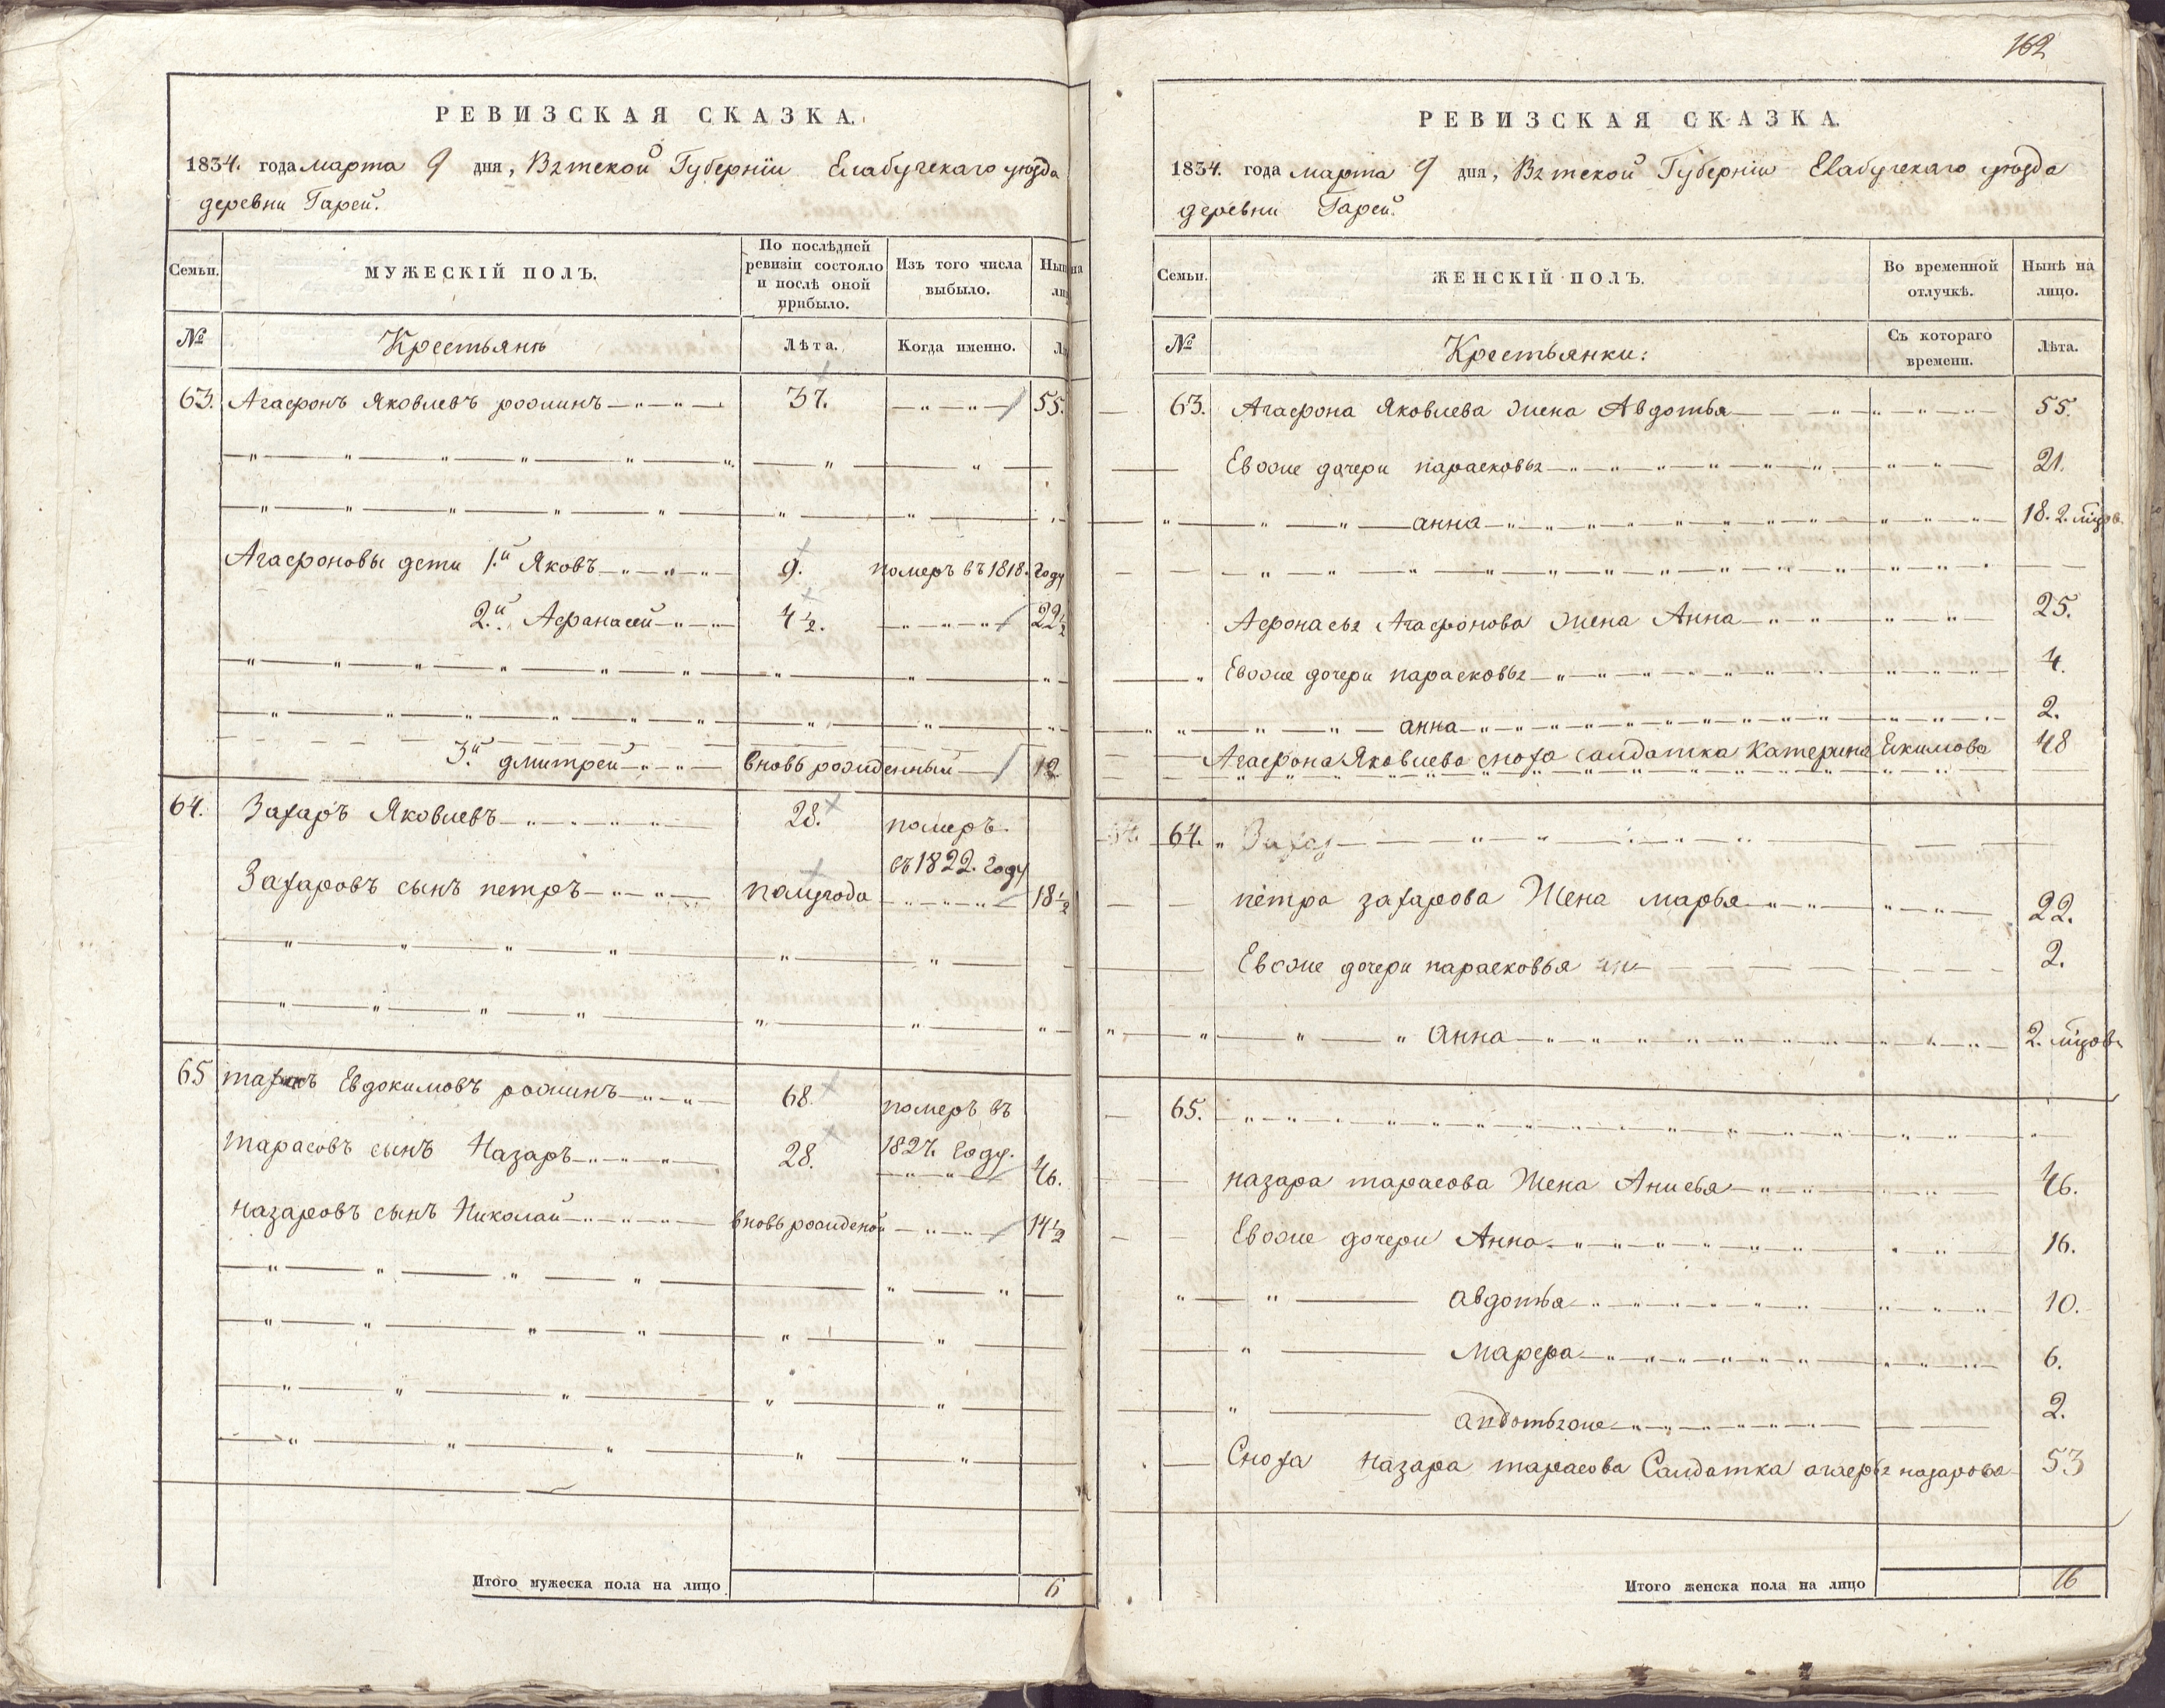 162
РЕВИЗСКАЯ СКАЗКА.
1834. года марта 9 дня, Вятской Губернïи Елабугскаго уѣзда
деревни Гарей.
Семьи.
МУЖЕСКIЙ ПОЛЪ.
По послѣдней
ревизiи состояло
и послѣ оной
прибыло.
Изъ того числа
выбыло.
Нынѣ на
лицо.
№
Крестьянѣ
Лѣта.
Когда именно.
63. Агафонъ Яковлевъ родинъ 37. 55.
Агафоновы дети 1.й Яковъ 9. померъ въ 1818. году
2.й Афанасей 4 1/2. 22 1/2
3.й дмитрей вновь рожденный 12
64. Захаръ Яковлевъ 28. померъ
въ 1822. году
Захаровъ сынъ петръ полугода 18 1/2
65 Евдокимовъ родинъ 68. померъ въ
1827. году.
тарасовъ сынъ Назаръ 28. 46.
назаровъ сынъ Николай вновь рожденой 14 1/2
Итого мужеска пола на лицо 6
РЕВИЗСКАЯ СКАЗКА.
1834. года марта 9 дня, Вятской Губернïи Елабугскаго уѣзда
деревни Гарей.
Семьи.
ЖЕНСКIЙ ПОЛЪ.
Во временной
отлучкѣ.
Нынѣ на
лицо.
№
Крестьянки:
Съ котораго
времени.
Лѣта.
63. Агафона Яковлева жена Авдотья 55.
Евоже дочери парасковья 21.
анна 18.
Афонасья Агафонова жена Анна 25.
Евоже дочери парасковья 4.
анна 2.
Агафона Яковлева сноха салдатка Катерина Екимова 48
64. Захар
петра захарова Жена марья 22.
Евоже дочери парасковья 2.
анна 2.
65.
назара тарасова Жена Анисья 46.
Евоже дочери Анна 16.
авдотья 10.
Марфа 6.
авдотьяже 2.
Сноха назара тарасова Салдатка агафья назарова 53
Итого женска пола на лицо 16